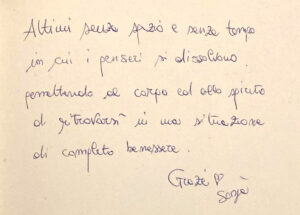 Attimi senza spazio e senza tempo
in cui i pensieri si dissolvono
permettendo al corpo ed allo spirito
di ritrovarsi in una situazione
di completo benessere.
Grazie ♡